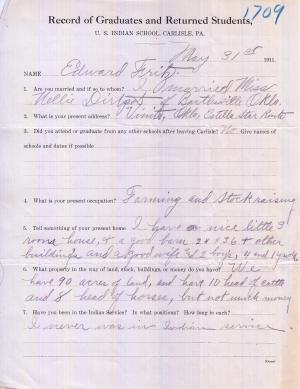 1709
Record of Graduates and Returned Students,
U. S. INDIAN SCHOOL, CARLISLE, PA.
May 31st 1911.
NAME Edward Fritz.
1. Are you married and if so to whom? I married Miss
Nellie of Bartlesville Okla.
2. What is your present address? Vinita, Okla, Estella Star Route
3. Did you attend or graduate from any other schools after leaving Carlisle? No Give names of
schools and dates if possible
4. What is your present occupation? Farming and Stock raising
5. Tell something of your present home I have a nice little 3
room house, & a good barn 24 x 36 & other
buildings and a good wife & 2 boys, 4 and 1 yr old
6. What property in the way of land, stock, buildings, or money do you have? We
have 90 acres of land, and have 10 head of cattle
and 8 head of horses, but not much money
7. Have you been in the Indian Service? In what positions? How long in each?
I never was in Indian service.
(Over)